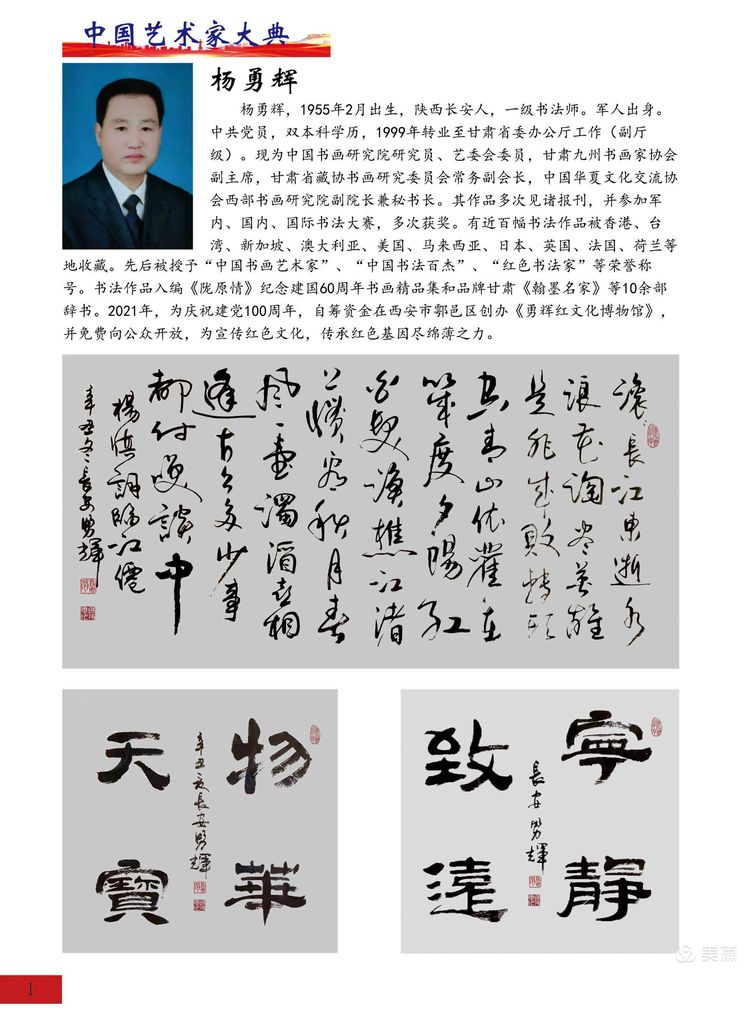 中国艺术家大典
杨勇辉
杨勇辉，1955年2月出生，陕西长安人，一级书法师。军人出身。
中共党员，双本科学历，1999年转业至甘肃省委办公厅工作（副厅
级）。现为中国书画研究院研究员、艺委会委员，甘肃九州书画家协会
副主席，甘肃省藏协书画研究委员会常务副会长，中国华夏文化交流协
会西部书画研究院副院长兼秘书长。其作品多次见诸报刊，并参加军
内、国内、国际书法大赛，多次获奖。有近百幅书法作品被香港、台
湾、新加坡、澳大利亚、美国、马来西亚、日本、英国、法国、荷兰等
地收藏。先后被授予“中国书画艺术家”、“中国书法百杰”、“红色书法家”等荣誉称
号。书法作品入编《陇原情》纪念建国60周年书画精品集和品牌甘肃《翰墨名家》等10余部
辞书。2021年，为庆祝建党100周年，自筹资金在西安市鄠邑区创办《勇辉红文化博物馆》，
并免费向公众开放，为宣传红色文化，传承红色基因尽绵薄之力。
滚〻長江東逝水
浪花淘尽英雄
是非成敗轉頭
空青山依舊在
幾度夕陽紅
白髮漁樵江渚
上慣看秋月春
風一壺濁酒喜相
逢古今多少事
都付笑談中
楊慎詞臨江僊
辛丑冬長安勇輝
物華
天寶
辛丑冬長安勇輝
寧靜
致遠
長安勇輝
美篇
1